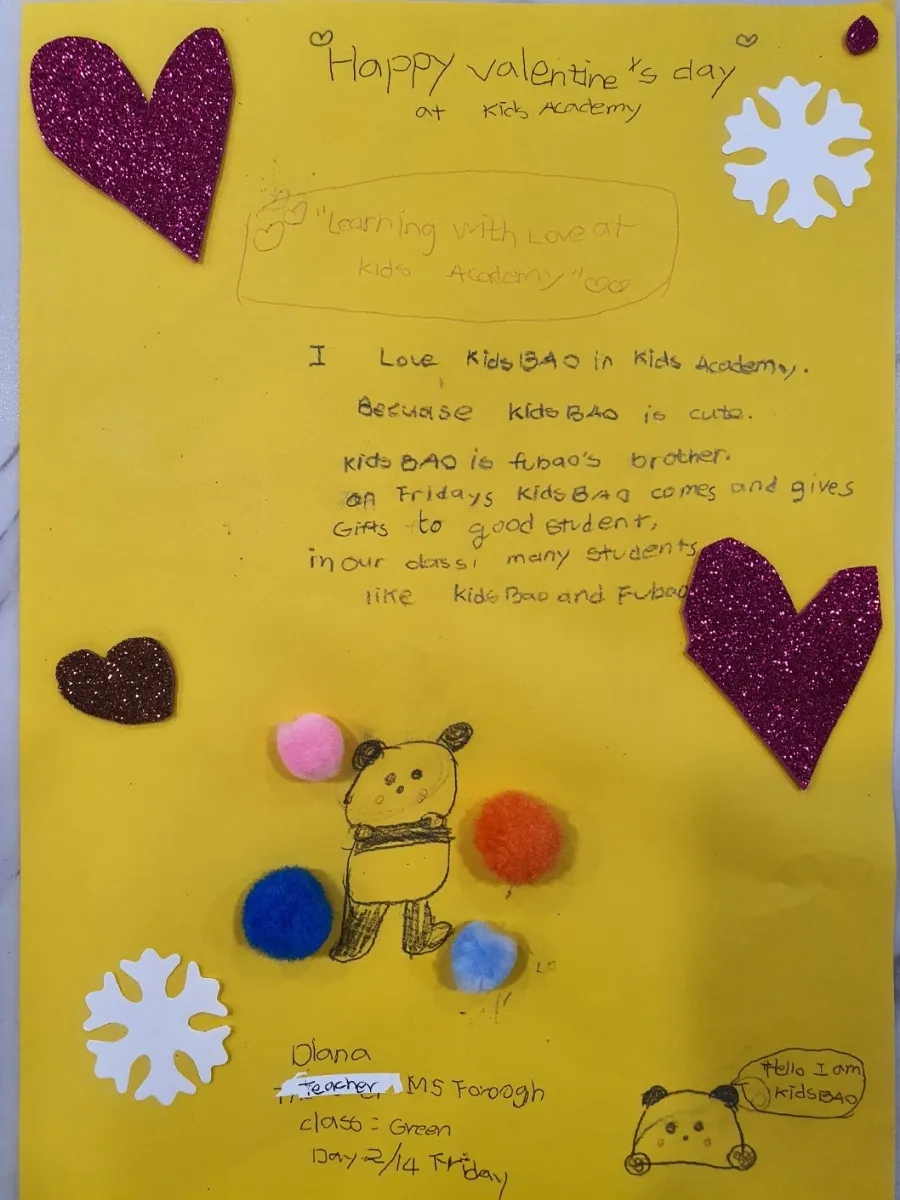 Happy valentine's day
at Kids Academy
"Learning with Love at
Kids Academy"
I Love KidsBAO in Kids Academy.
Becuase KidsBAO is cute.
KidsBAO is fubao's brother.
on Fridays KidsBAO comes and gives
Gifts to good student,
in our class, many students
like KidsBao and Fubao
Diana
Teacher MS Foroogh
class = Green
Day 2/14 Friday
Hello I am
KidsBAO